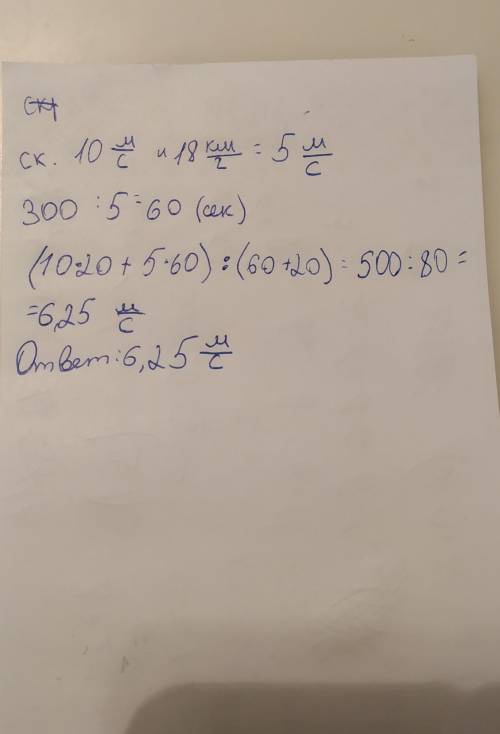 ск. 10 м/с и 18 км/г = 5 м/с
300 : 5 = 60 (сек)
(10·20 + 5·60) : (60+20) = 500 : 80 =
= 6,25 м/с
Ответ: 6,25 м/с